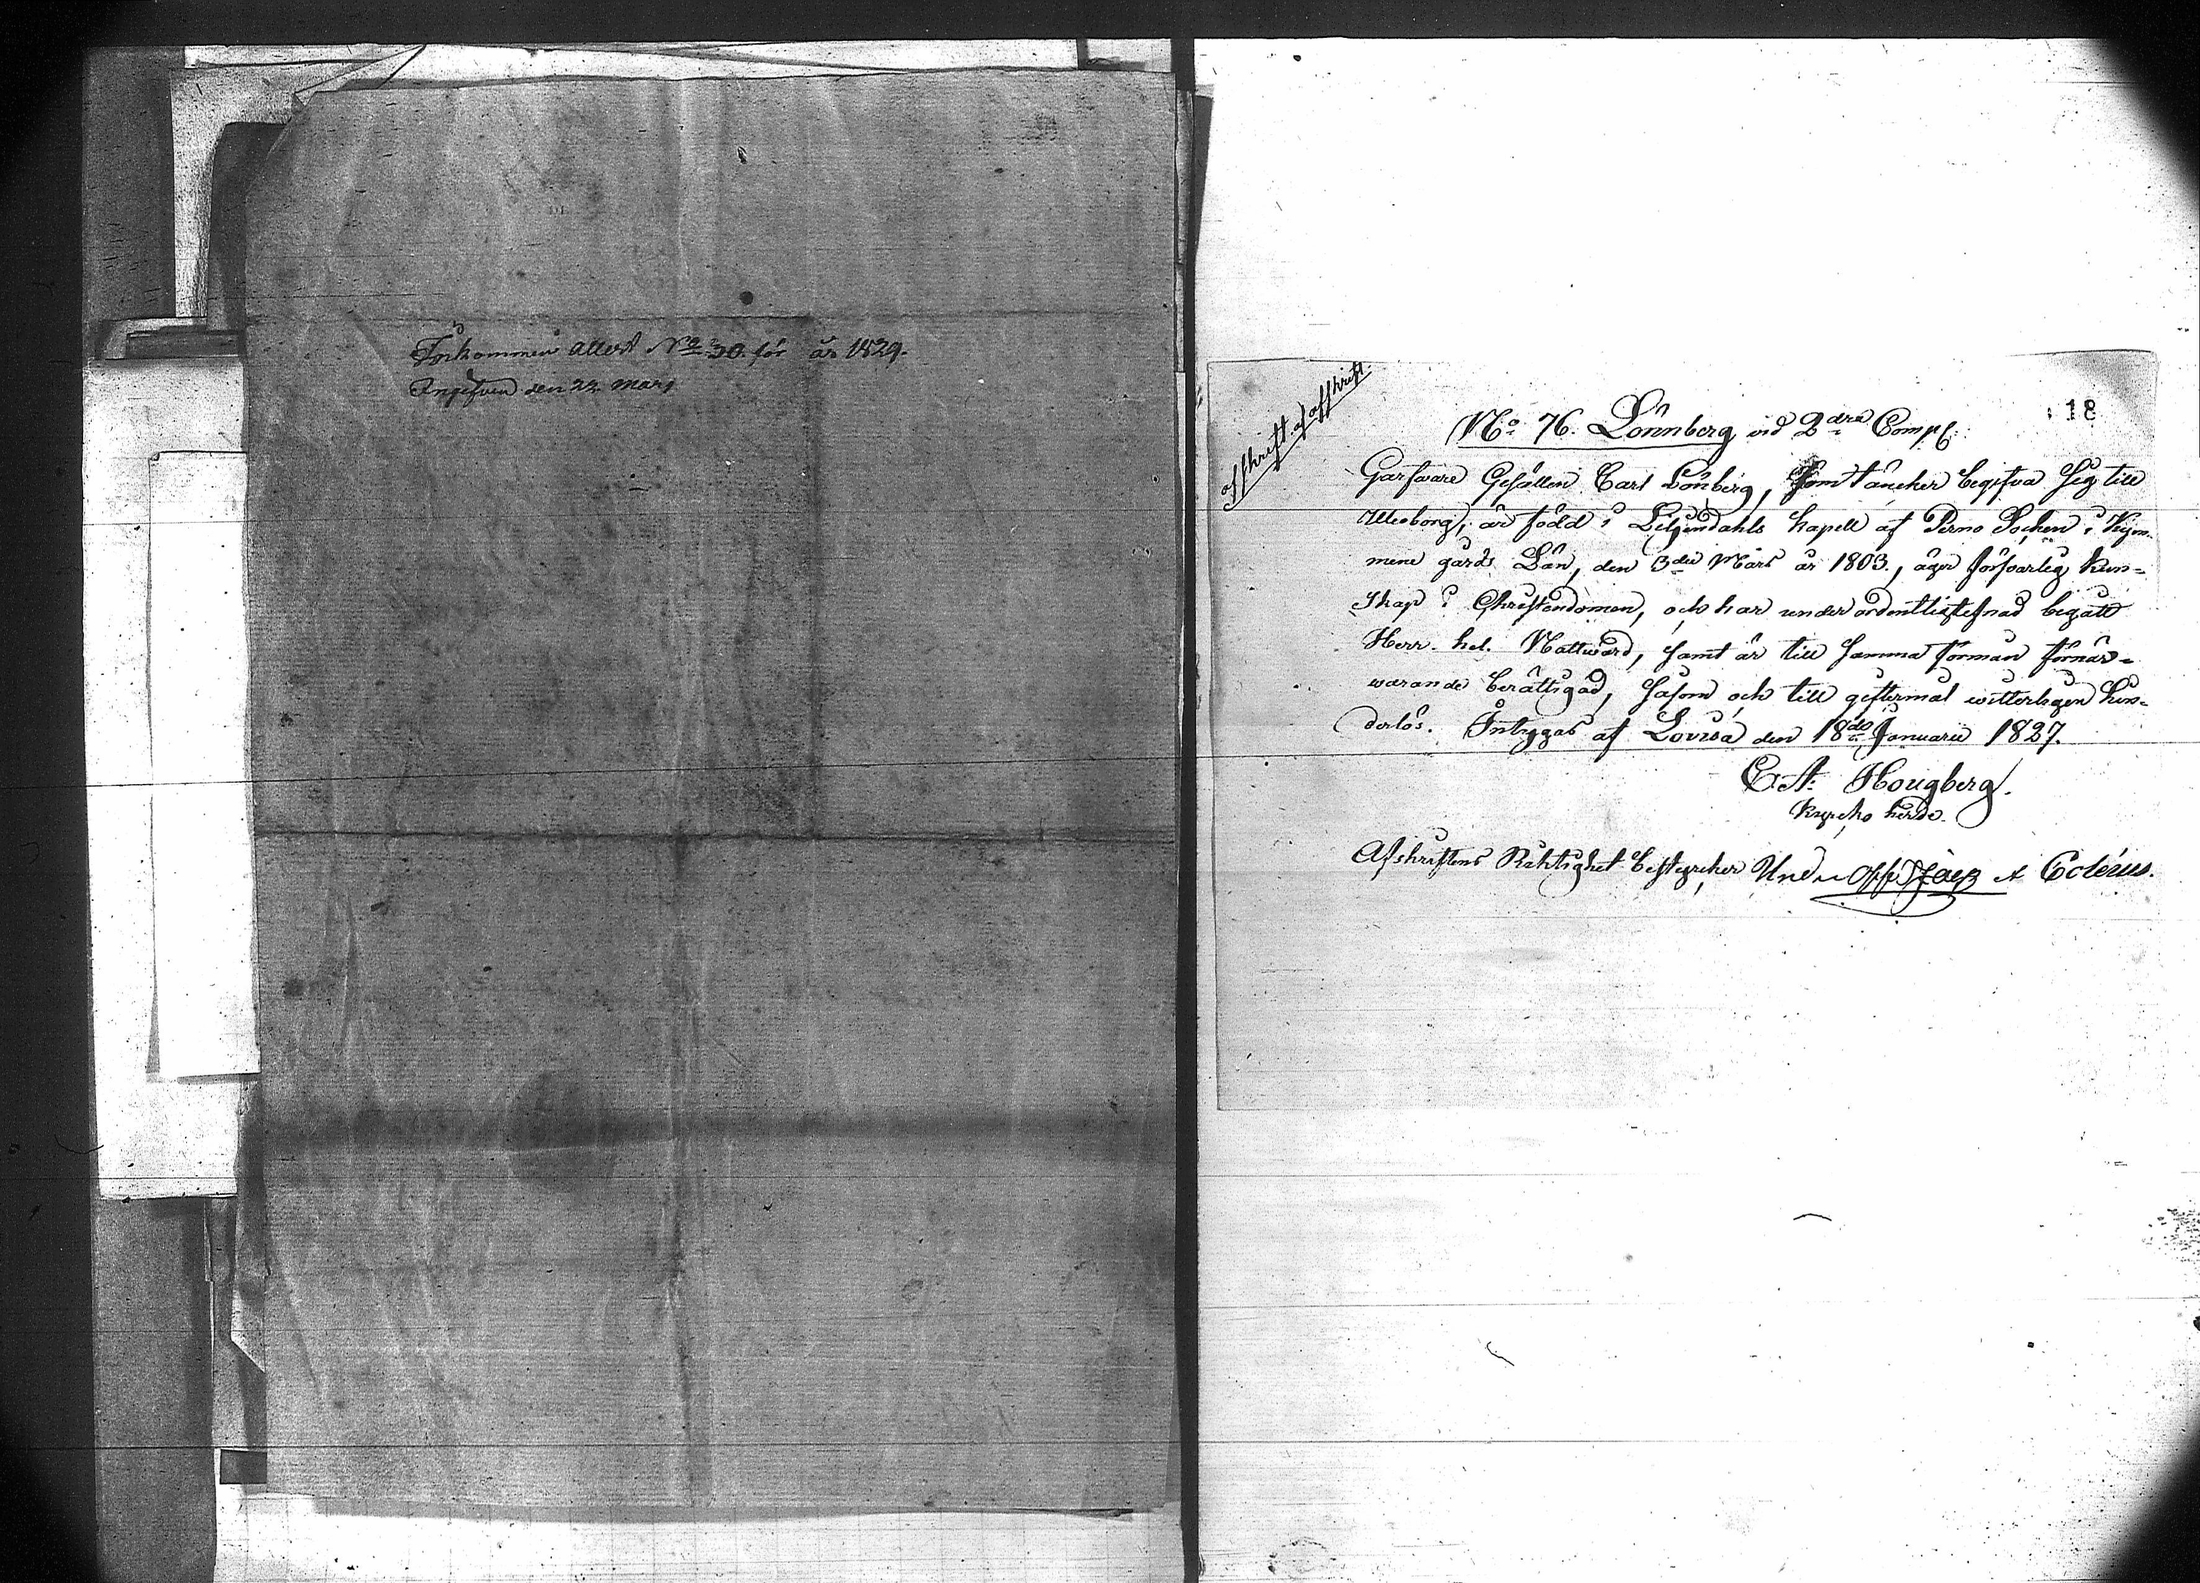 Inkommen attest No 30. för år 1829.
Ingifven den 22 Mars
18
afskrift af afskrift
No 76. Lönnberg vid 2dra Comp:
Garfware Gesällen Carl Lönberg, som täncker begifva sig till
Uleåborg, är född i Liljendahls kapell af Perno Sochen i Kym-
mene gårds Län, den 3die Mars år 1803., äger försvarlig kun-
skap i Christendomen, och har under ordentlig lefnad begått
Herr. hel. Nattvard, samt är till samma förmån förnär-
warande berättigad, såsom och till giftermål witterligen hin-
derlös. Intygas af Lovisa den 18de Januarii 1827.
C. A. Hougberg.
Kyrcko herde.
Afskriftens Riktighet bestyrcker Under A Colérus.